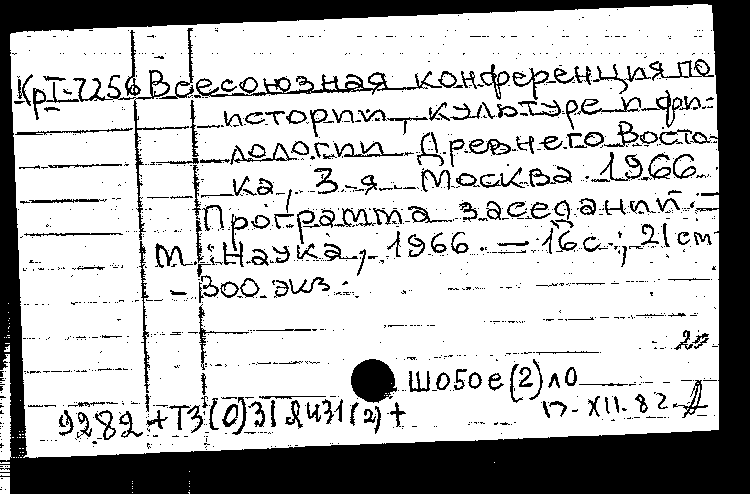 КрI-7256 Всесоюзная конференция по
истории, культуре и фи-
лологии Древнего Восто-
ка, 3-я. Москва. 1966.
Программа заседаний. -
М.: Наука, 1966. - 16 с.; 21 см
- 300 экз.
20
Ш050е(2)л0
9282 +Т3(0)31я431(2)+
17.XII.82.